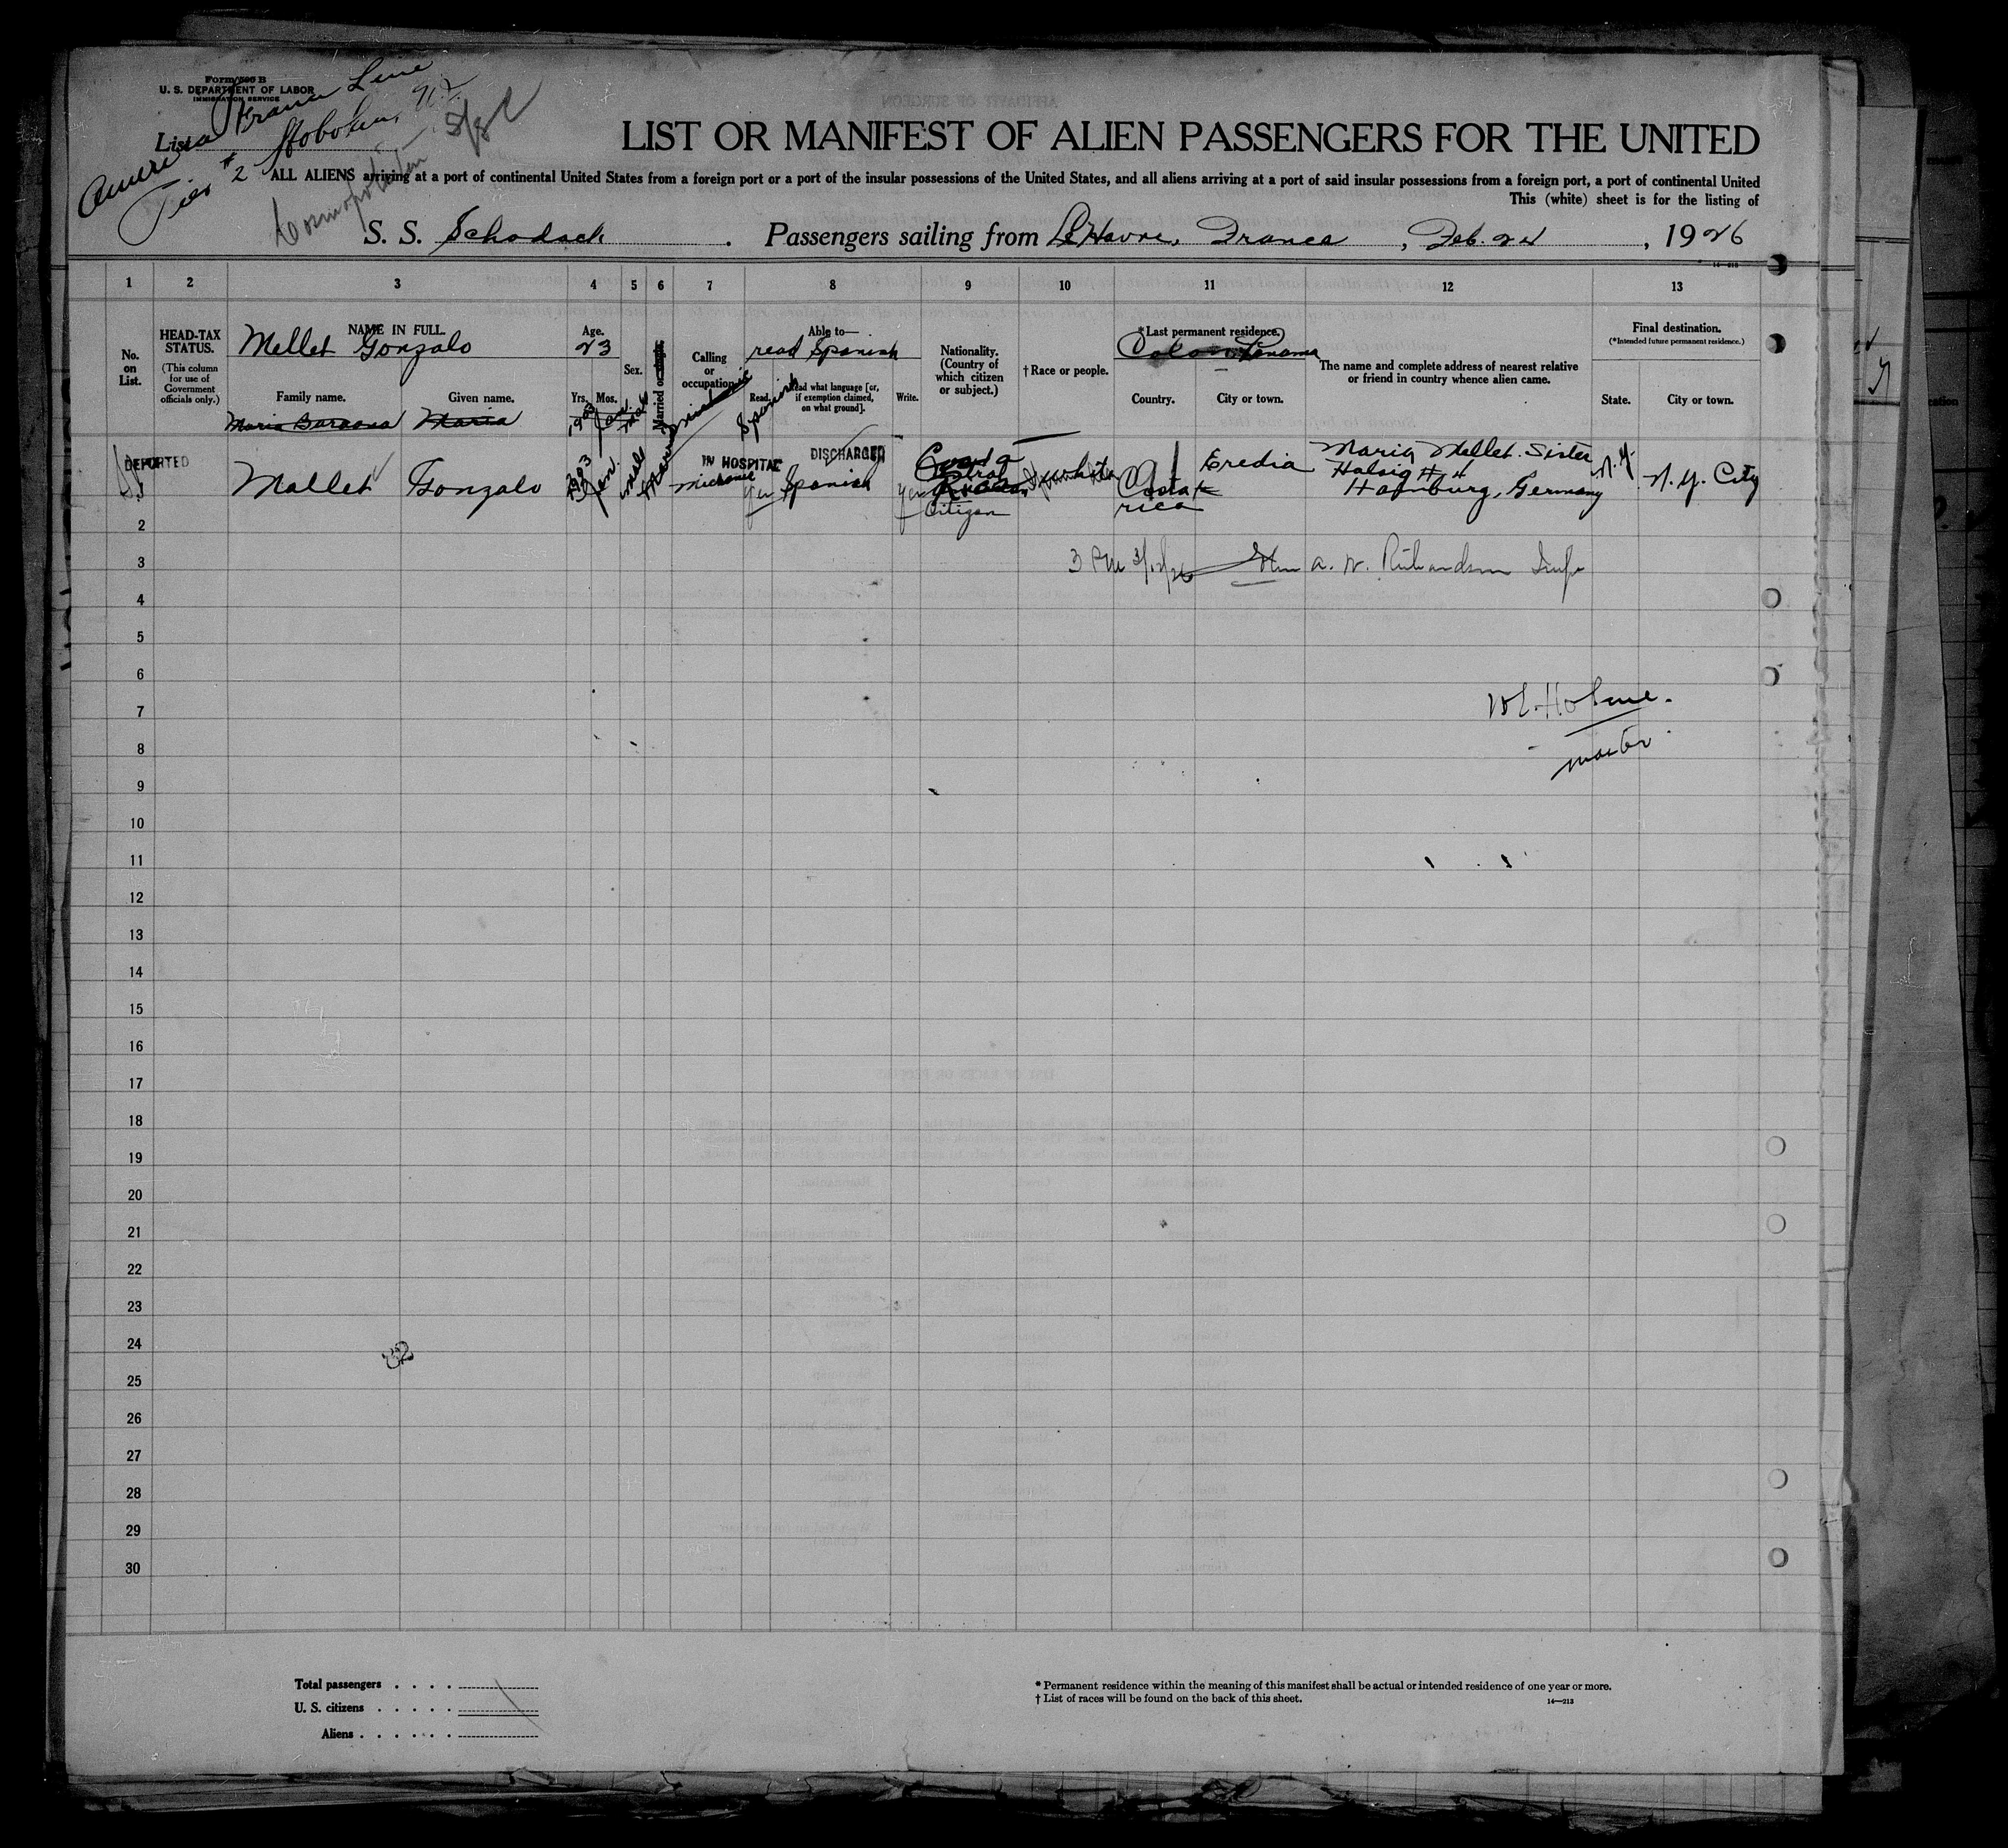 Form 595 B
U. S. DEPARTMENT OF LABOR
IMMIGRATION SERVICE
List
America France Line
Pier #2 Hoboken, N.J.
Cosmopolitan
LIST OR MANIFEST OF ALIEN PASSENGERS FOR THE UNITED
ALL ALIENS arriving at a port of continental United States from a foreign port or a port of the insular possessions of the United States, and all aliens arriving at a port of said insular possessions from a foreign port, a port of continental United
This (white) sheet is for the listing of
S. S. Schodack . Passengers sailing from Le Havre, France , Feb. 24 , 1926
14—213
1 2 3 4 5 6 7 8 9 10 11 12 13
No. on List.
HEAD-TAX STATUS.
(This column for use of Government officials only.)
NAME IN FULL.
Mellet Gonzalo
Family name. Given name.
Maria
Age.
23
Yrs. Mos.
Sex.
Married or single.
Calling or occupation.
Able to—
read Spanish
Read. Read what language [or, if exemption claimed, on what ground]. Write.
Spanish
Nationality. (Country of which citizen or subject.)
†Race or people.
*Last permanent residence.
Colon Panama
Country. City or town.
The name and complete address of nearest relative or friend in country whence alien came.
Final destination.
(*Intended future permanent residence.)
State. City or town.
DEPORTED
IN HOSPITAL
DISCHARGED
1 Mallet Gonzalo 1903 Jan. male Yes Spanish Yes
Costa
Citizen
white
Costa rica
Eredia
Maria Mellet. Sister
Hamburg, Germany
N.Y.
N. Y. City
2
3
3 PM 3/12/26 A. W. Richardson Insp
4
5
6
7
W. E. Holme.
master
8
9
10
11
12
13
14
15
16
17
18
19
20
21
22
23
24
82
25
26
27
28
29
30
Total passengers . . . .
U. S. citizens . . . . .
Aliens . . . . . .
* Permanent residence within the meaning of this manifest shall be actual or intended residence of one year or more.
† List of races will be found on the back of this sheet.
14—213